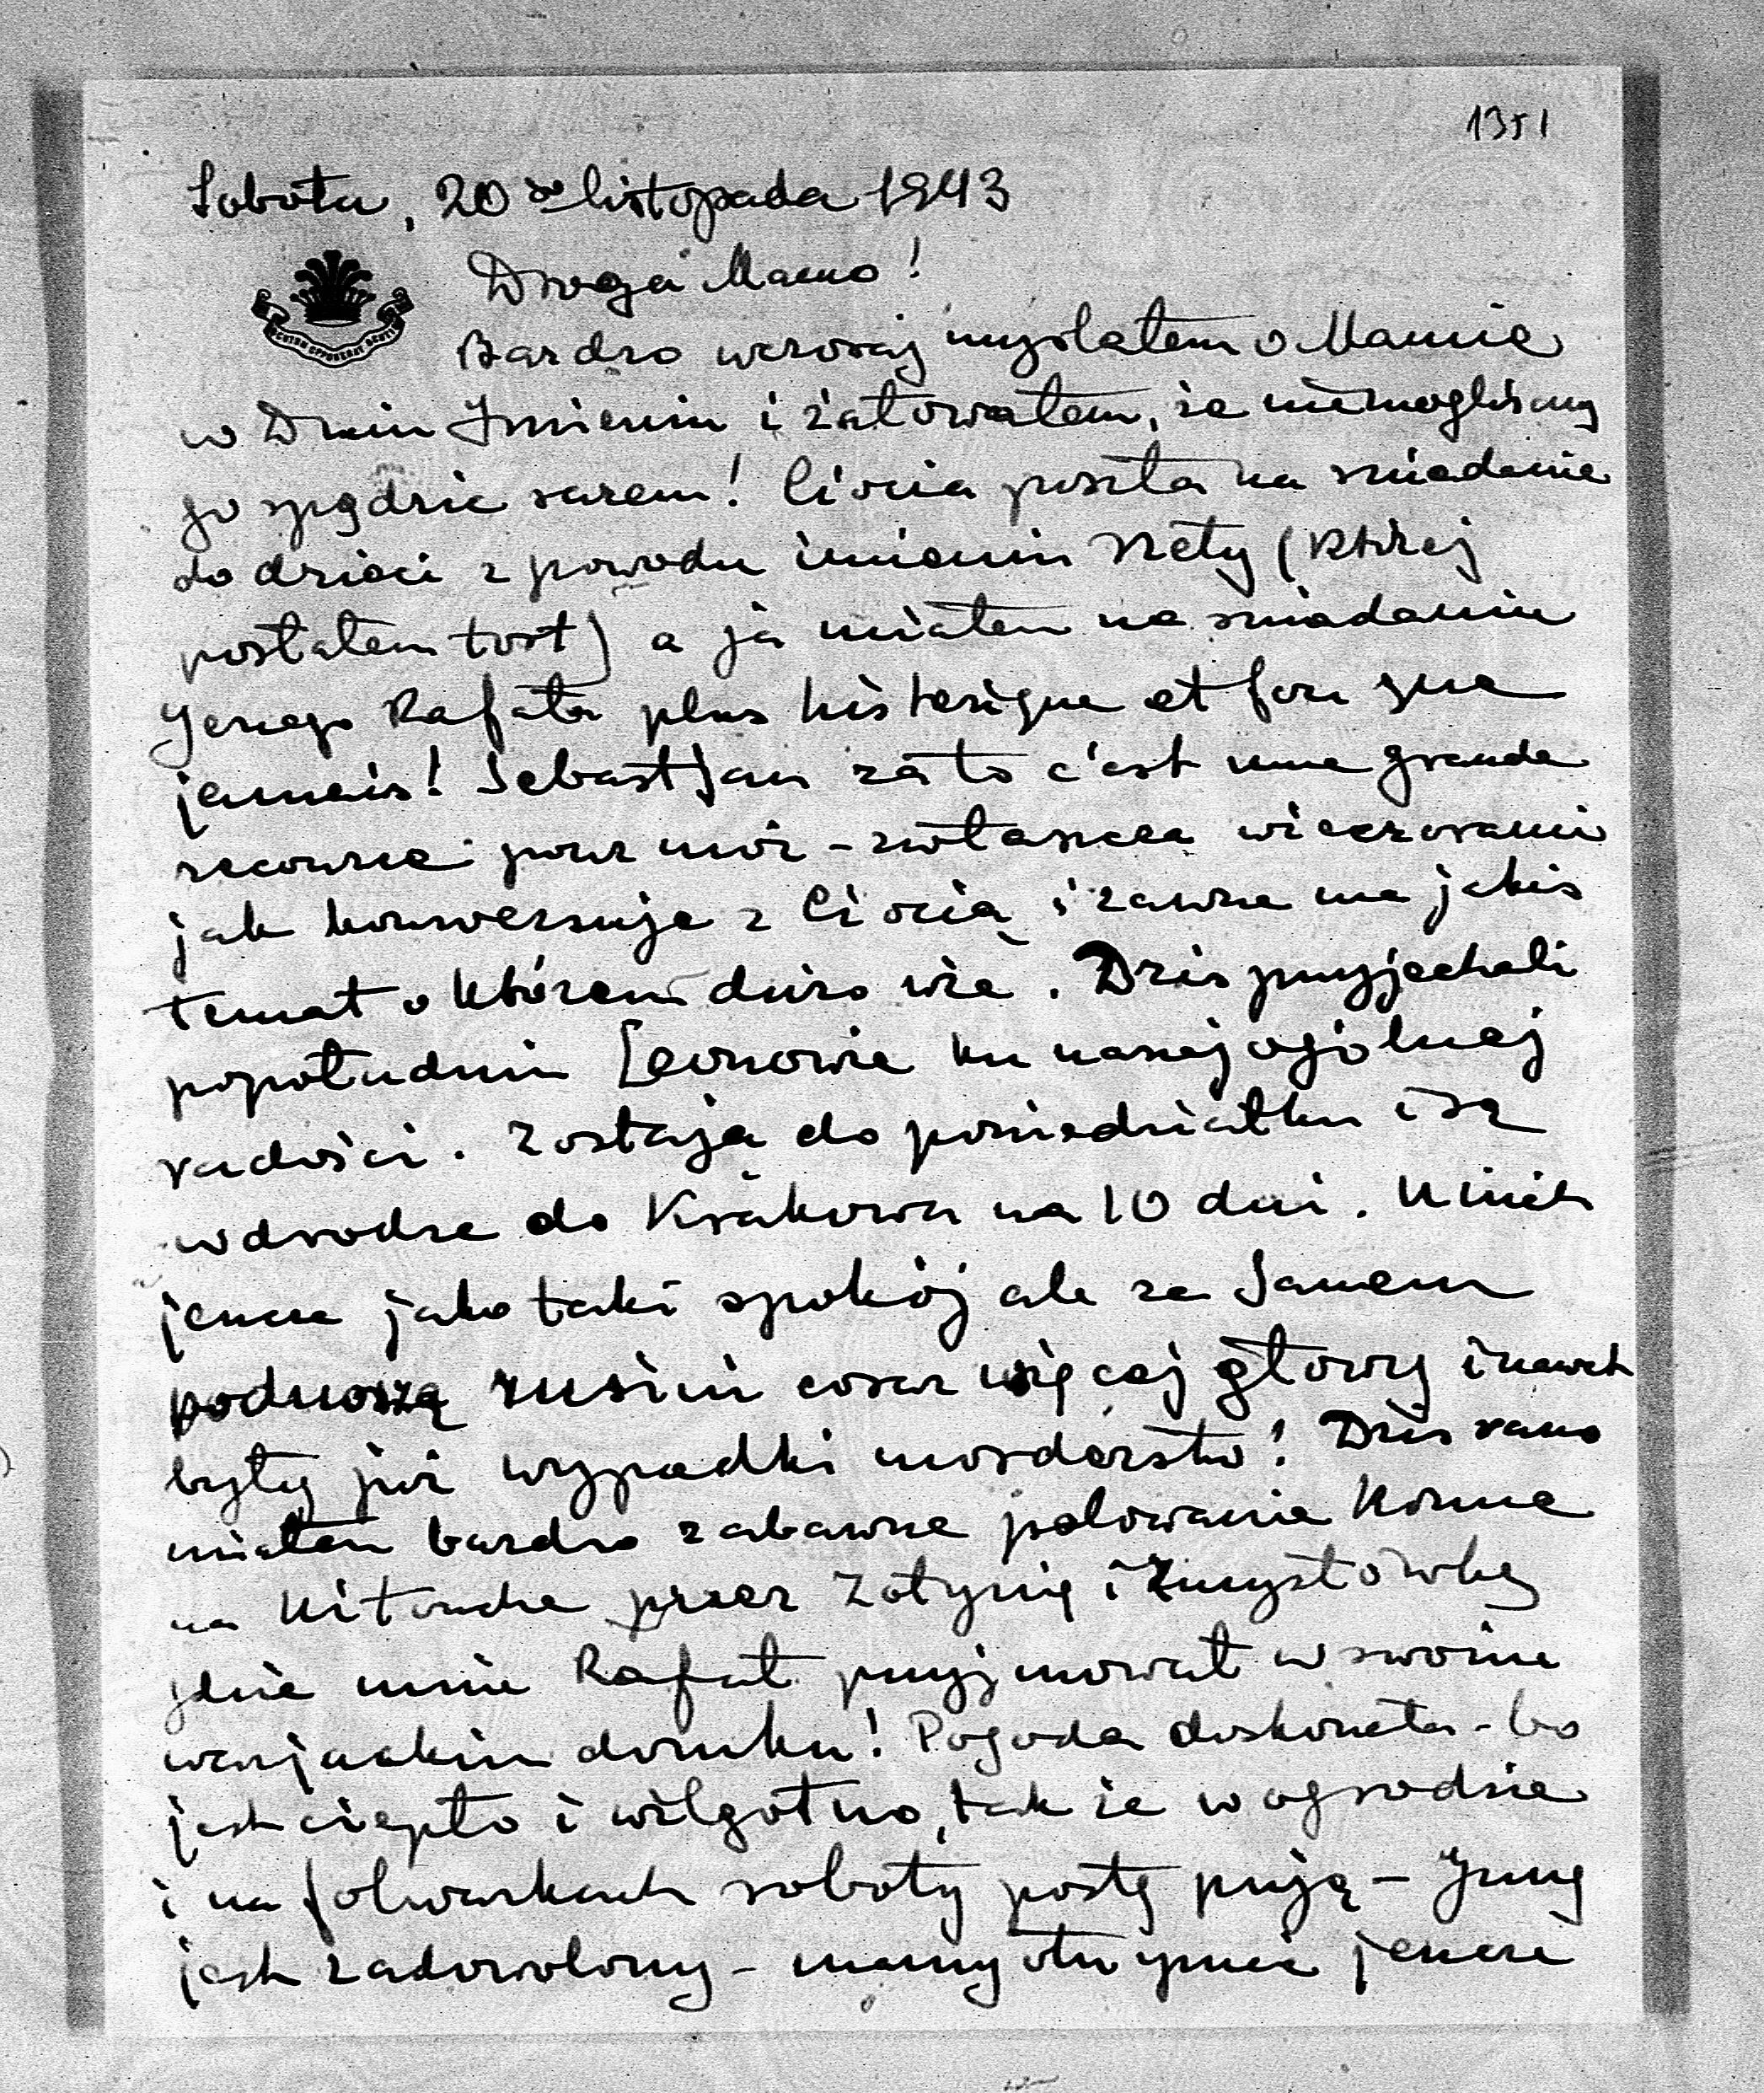 1351
Sobota, 20go listopada 1943
Droga Mamo!
DEUTRUM OPPONERAT ACUTIS
Bardzo wczoraj myslałem o Mamie
w Dniu Imienin i żałowałem, że niemogliśmy
go spędzić razem! Ciocia poszła na sniadanie
do dzieci z powodu imienin Nety (której
posłałem tost) a ja miałem na sniadaniu
Jerzego Rafała plus histerique et fou que
jamais! Sebastjan zato c'est une grande
recourse pour moi - zwłaszcza wieczorami
jak konwersuje z Ciocią i zawsze ma jakis
temat o którem dużo wie. Dzis przyjechali
popołudniu Leonowie ku naszej ogólnej
radości. Zostają do poniedziałku i są
w drodze do Krakowa na 10 dni. U nich
jeszcze jako taki spokój ale za Sanem
podnoszą rusini coraz więcej głowy i nawet
były już wypadki morderstw! Dzis rano
miałem bardzo zabawne polowanie konne
na Kitousche przez Zołynię i Zmysłówkę
gdzie mnie Rafał przyjmował w swoim
warjackim domku! Pogoda doskonała - bo
jest ciepło i wilgotno, tak że w ogrodzie
i na folwarkach roboty postępują - Jung
jest zadowolony - mamy otrzymać jeszcze